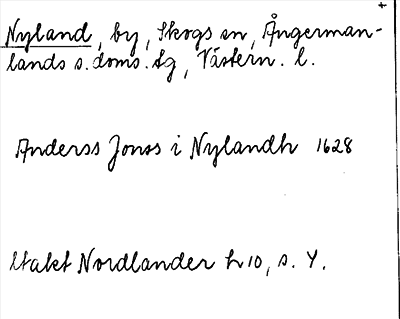 +
Nyland, by, Skogs sn, Ångerman-
lands s. doms. tg, Västern. l.
Anderss Jonss i Nylandh 1628
Utakt Nordlander h 10, s. Y.